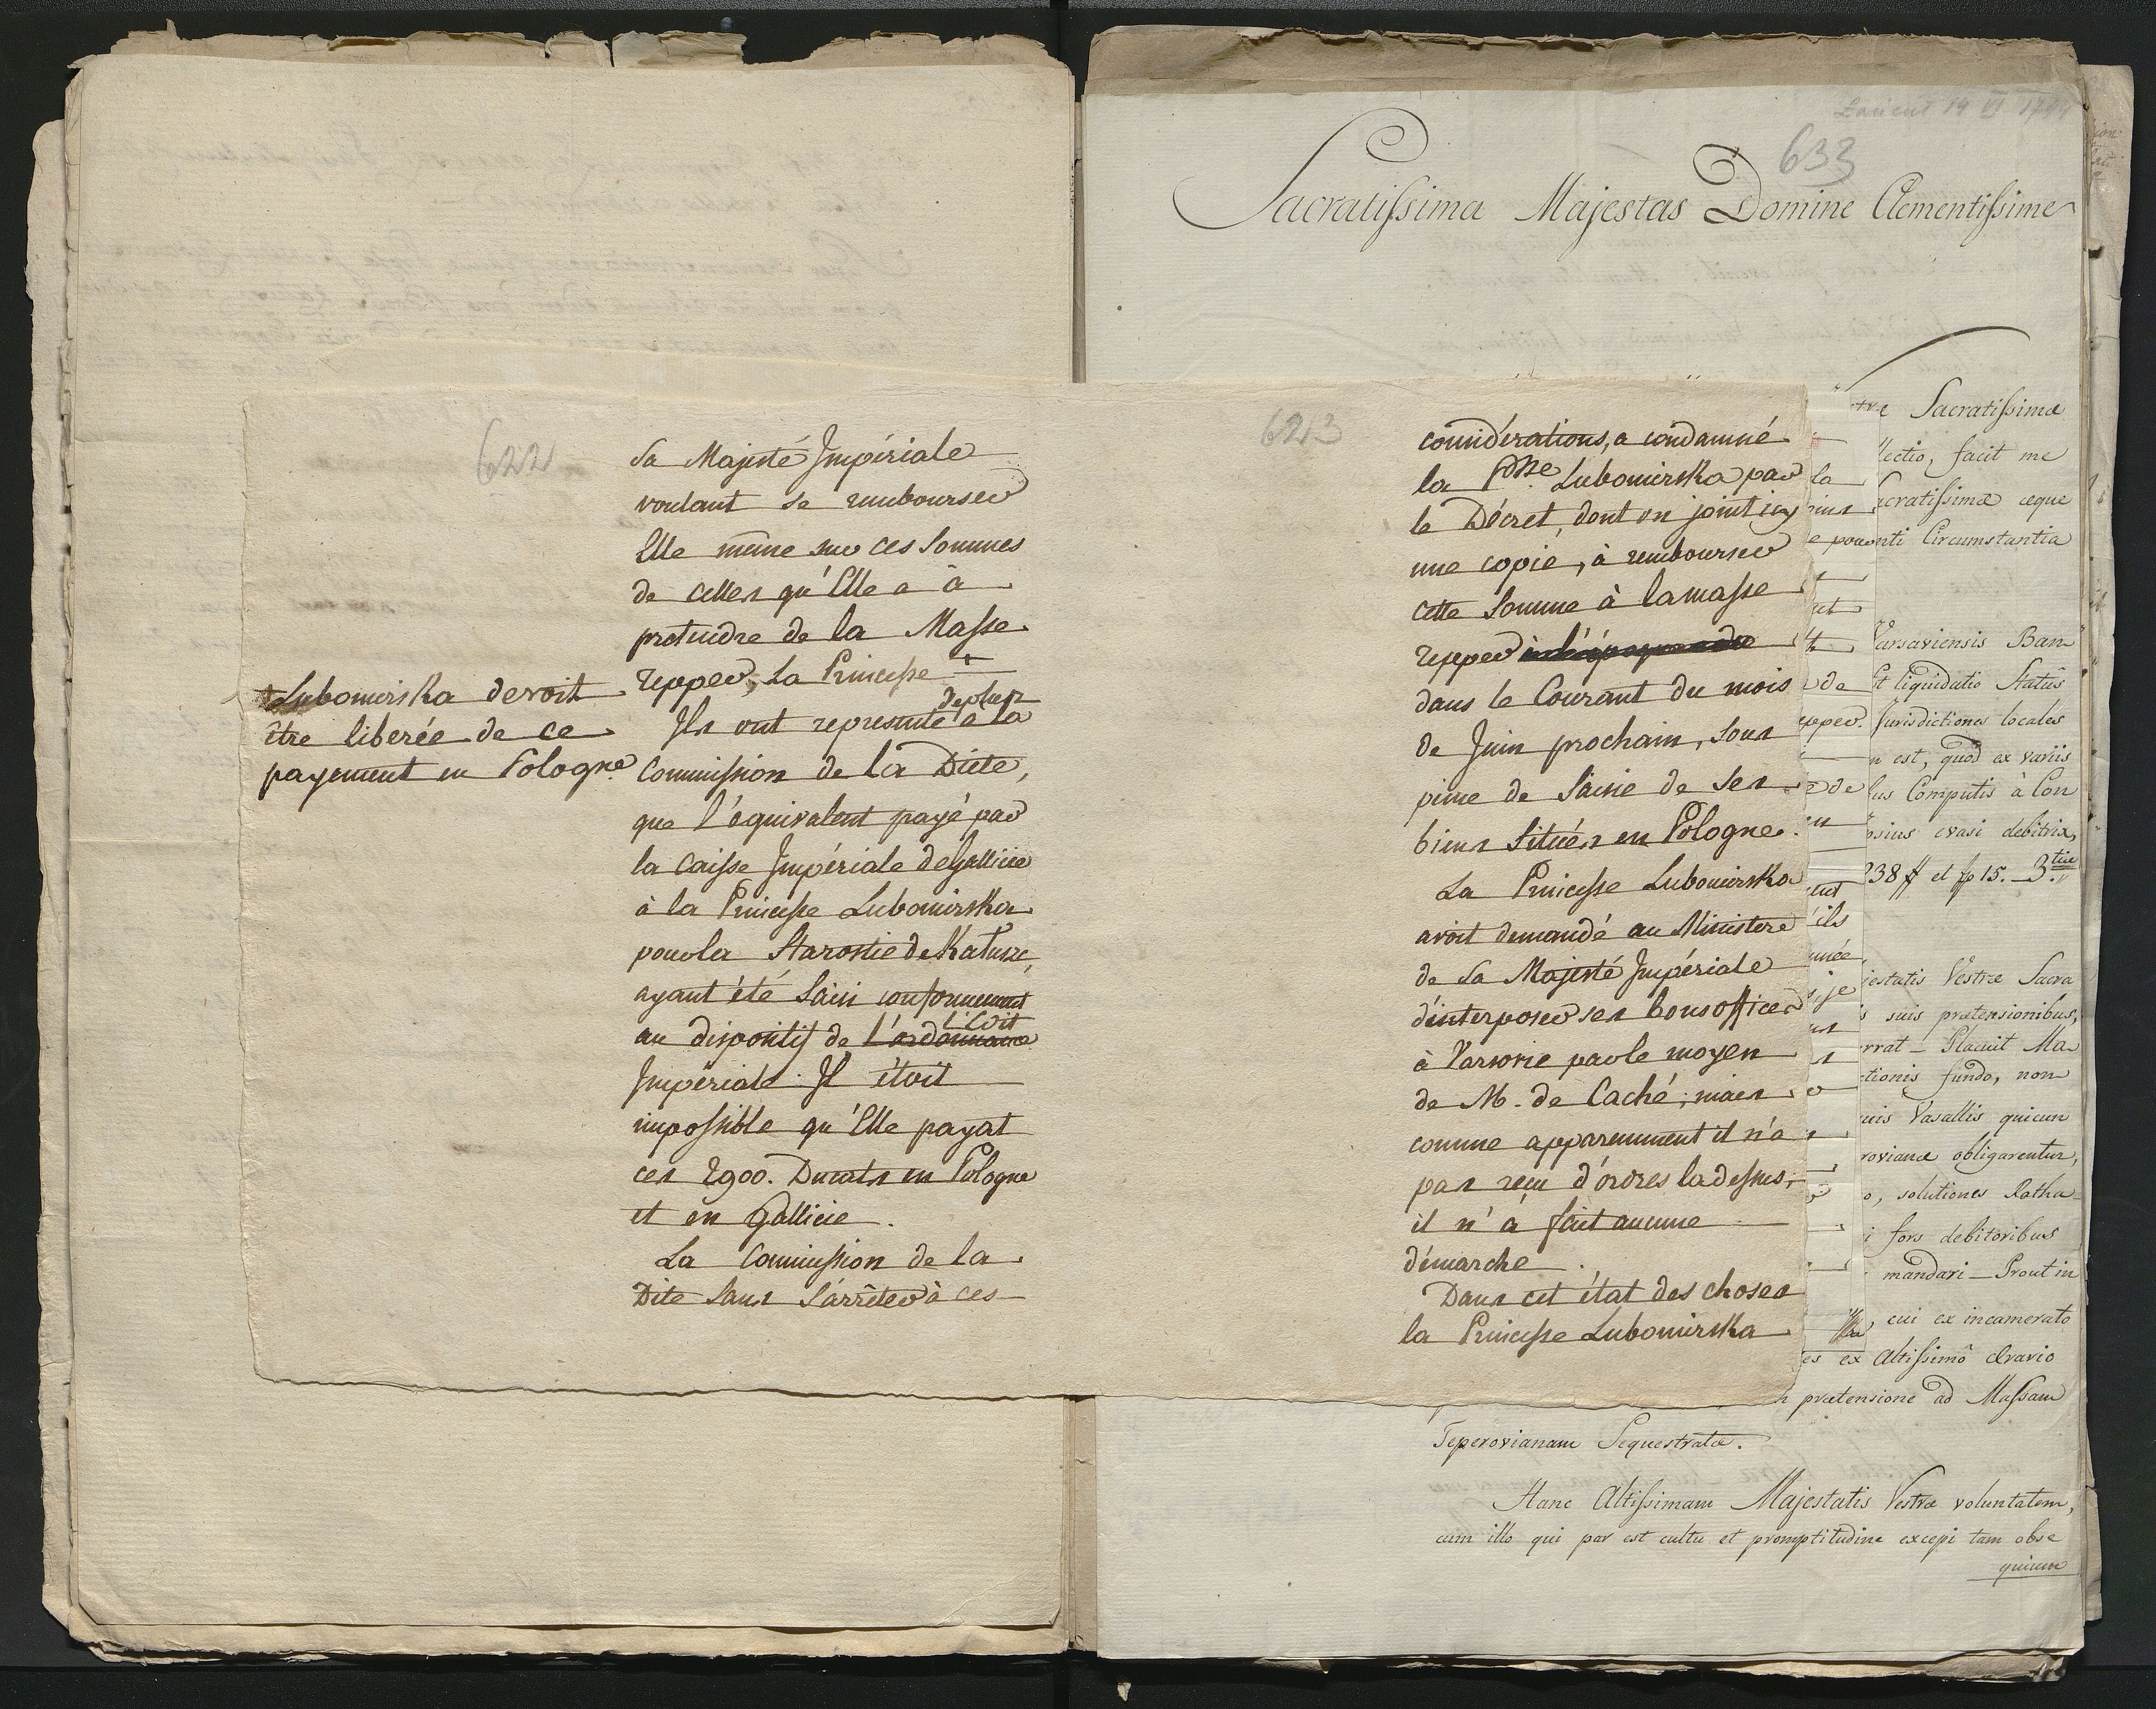 622
Sa Majesté Impériale
voulant se rembourser
Elle même sur ces Sommes
de celles qu'Elle a à
pretendre de la Masse
Tepper, La Princesse +
+ Lubomirska devoit
être liberée de ce
payement en Pologne.
de plus
Ils ont representé à la
Commission de la Diete,
que l'équivalent payé par
la Caisse Impériale de Gallicie
à la Princesse Lubomirska
pour la Starostie de Kalusze,
ayant été Saisi conformement
l'Edit
au dispositif de l'ordonnance
Impériale. Il étoit
impossible qu'Elle payat
ces 2900. Ducats en Pologne
et en Gallicie.
La Commission de la
Diete Sans S'arrêter à ces
623
considérations, a condamné
la Psse Lubomirska par
le Décret, dont on joint icy
une copie, à rembourser
cette Somme à la masse
Tepper
dans le Courant du mois
de Juin prochain, Sous
peine de Saisie de Ses
biens Situés en Pologne.
La Princesse Lubomirska
avoit demandé au Ministere
de Sa Majesté Impériale
d'interposer ses bons offices
à Varsovie par le moyen
de M. de Caché; mais
comme apparemment il n'a
pas reçu d'ordres la dessus,
il n'a fait aucune
démarche.
Dans cet état des choses
la Princesse Lubomirska
Łańcut 14 VI
633
Sacratissima Majestas Domine Clementissime
Sacratissimæ
lectio, facit me
acratissimæ æque
nti Circumstantia
Varsaviensis Ban
Et liquidatio Statûs
Jurisdictiones locales
n est, quod ex variis
lus Computis à Con
osius evasi debitrix,
238 # et fp 15. 3.tia
jestatis Vestræ Sacra
s suis prætensionibus,
rrat – Placuit Ma
ctionis fundo, non
uis Vasallis quicun
rovianæ obligarentur,
o, solutiones Ratha
i fors debitoribus
mandari – Prout in
cui ex incamerato
es ex Altissimô Ærario
n prætensione ad Massam
Teperovianam Sequestratæ.
Hanc Altissimam Majestatis Vestræ voluntatem,
cum illo qui par est cultu et promptitudine excepi tam obse
quium